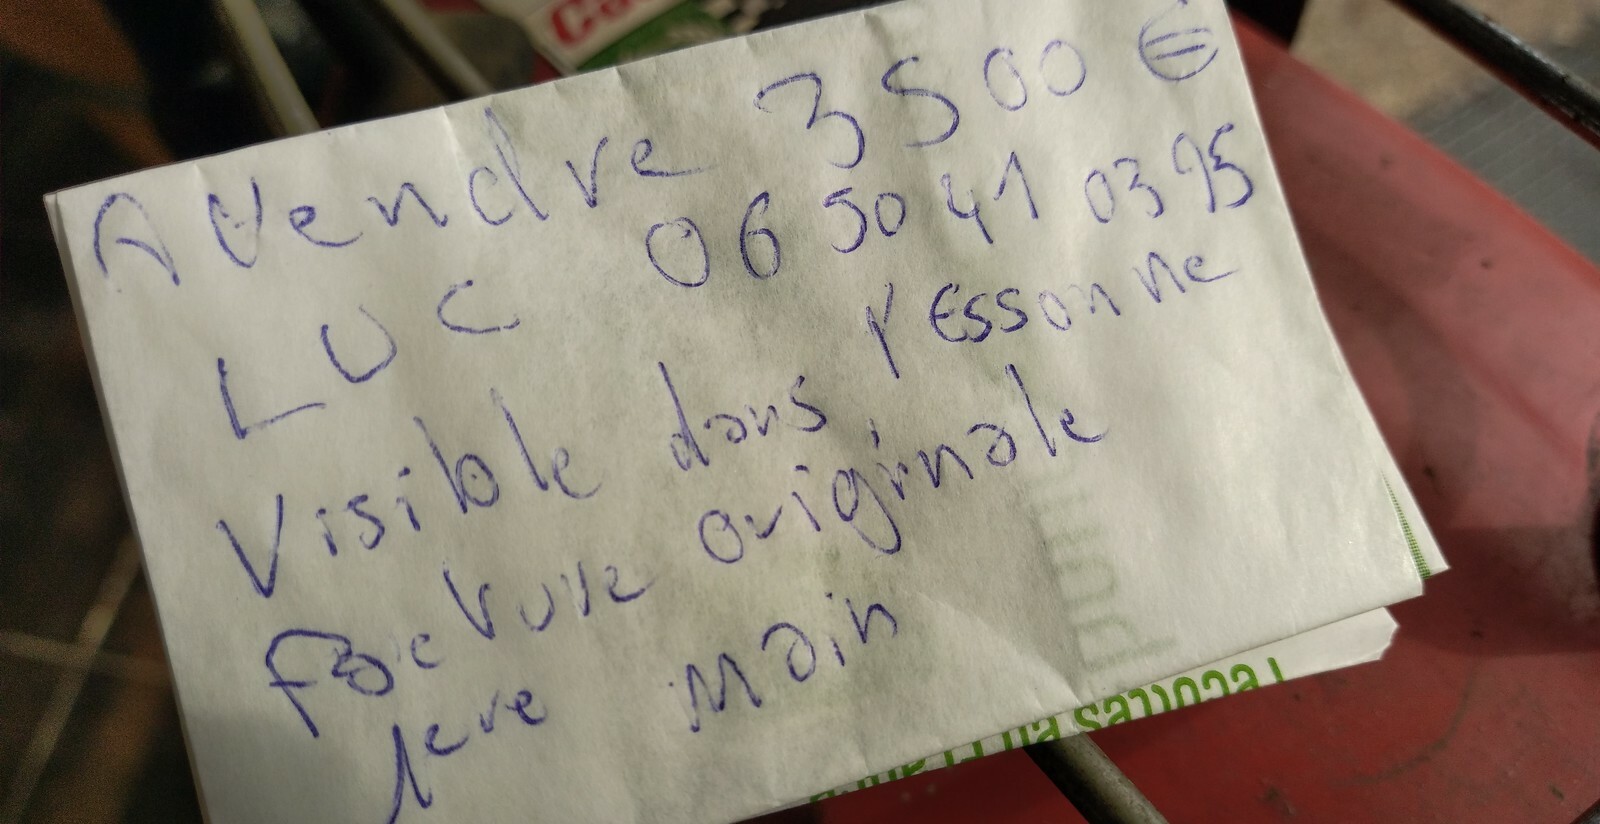 A Vendre 3500 €
LUC 06 50 41 03 95
Visible dans l'Essonne
Facture originale
1ere Main